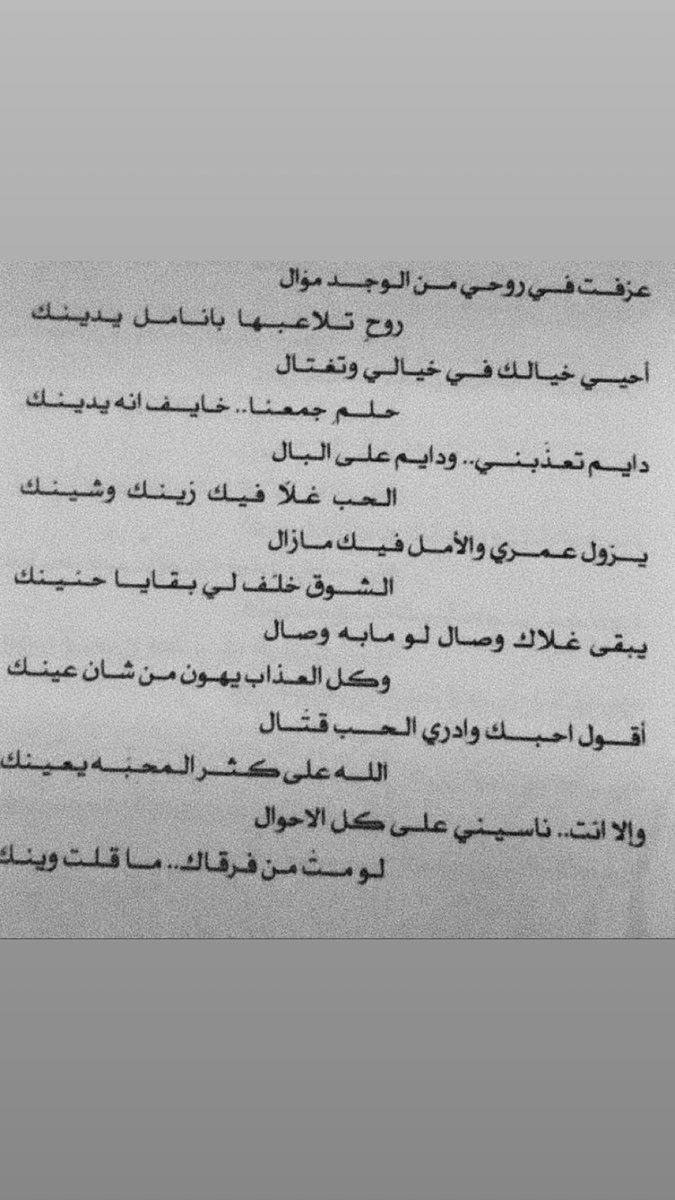 عزفت في روحي من الوجد موال
روحٍ تلاعبها بانامل يدينك
أحيي خيالك في خيالي وتغتال
حلمٍ جمعنا.. خايف انه يدينك
دايم تعذّبني.. ودايم على البال
الحب غلّا فيك زينك وشينك
يزول عمري والأمل فيك مازال
الشوق خلّف لي بقايا حنينك
يبقى غلاك وصال لو مابه وصال
وكل العذاب يهون من شان عينك
أقول احبك وادري الحب قتّال
الله على كثر المحبّه يعينك
وإلا انت.. ناسيني على كل الاحوال
لو متّ من فرقاك.. ما قلت وينك